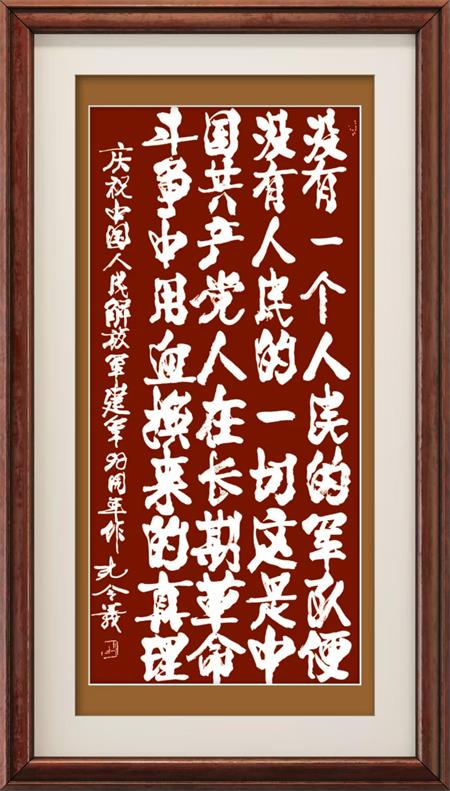 没有一个人民的军队便
没有人民的一切这是中
国共产党人在长期革命
斗争中用血换来的真理
庆祝中国人民解放军建军周年作 孔令義